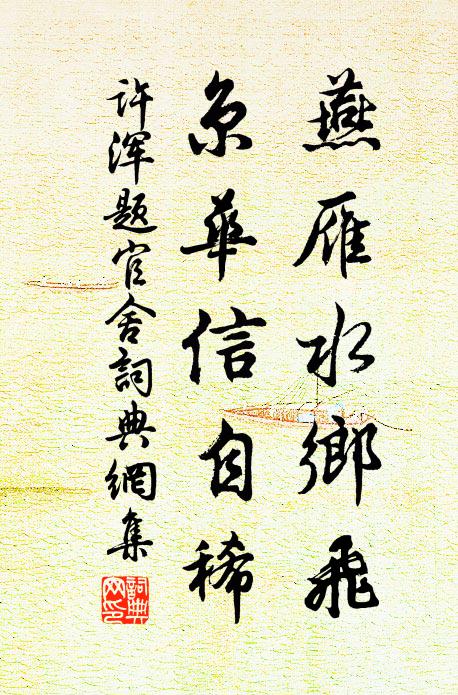 燕雁水鄉飛
京華信自稀
许渾題官舍詞典網集
詞典網印